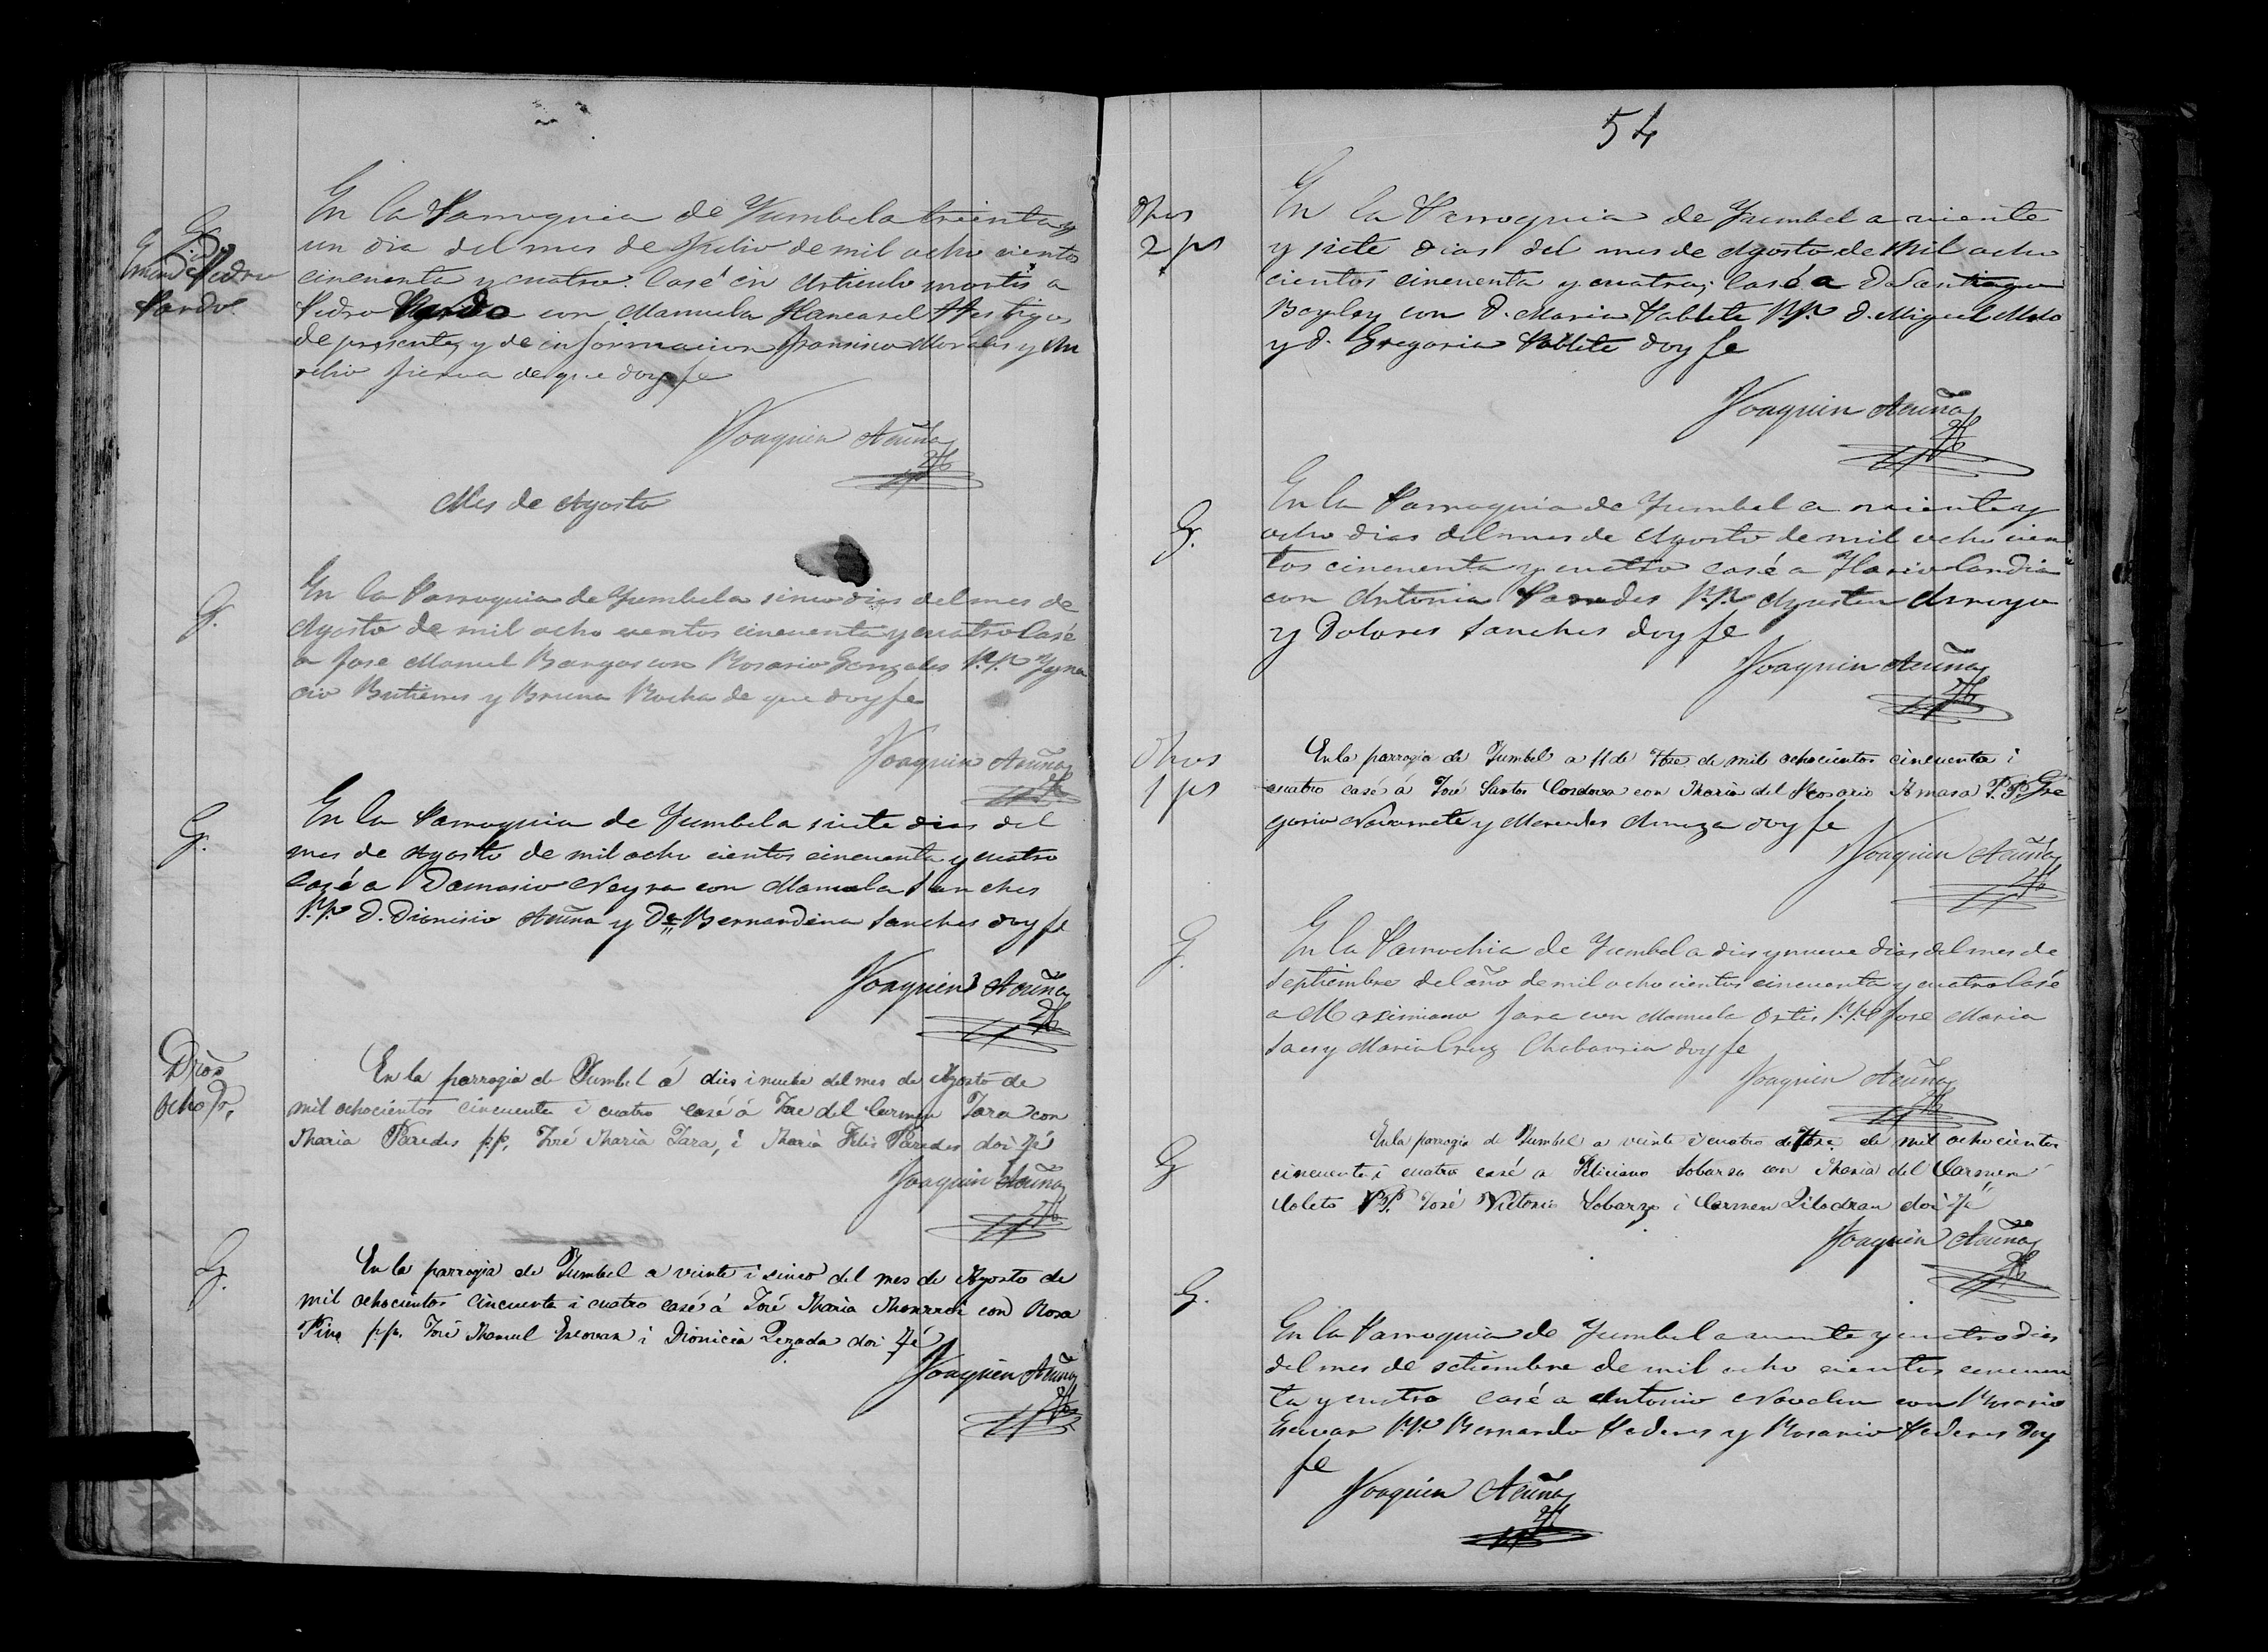 G.
Enmendº Pedro
Pardo
En la Parroquia de Yumbel a treinta y
un dia del mes de Julio de mil ocho cientos
cincuenta y cuatro. Casé en Articulo mortis a
Pedro Pardo con Manuela testigos
de presente, y de informacion Francisco Morales y
de que doy fe
Joaquin Acuña
Mes de Agosto
G.
En la Parroquia de Yumbel a sinco dias del mes de
Agosto de mil ocho cientos cincuenta y cuatro Casé
a Jose Manuel Bargas con Rosario Gonzales P.P. Ygna
cio Butierres y Bruna Rocha de que doy fe
Joaquin Acuña
G.
En la Parroquia de Yumbel a siete dias del
mes de Agosto de mil ocho cientos cincuenta y cuatro
Casé a Damasio Neyra con Manuela Sanches
P.P. D. Dionisio Acuña y Da. Bernardina Sanches doy fe
Joaquin Acuña
Dros
ocho r.
En la parroqia de Yumbel á dies i nuebe del mes de Agosto de
mil ochocientos cincuenta i cuatro casé á José del Carmen Jara con
Maria Paredes p.p. José Maria Jara, i Maria Felis Paredes doi fé
Joaquin Acuña
G.
En la parroqia de Yumbel a veinte i sinco del mes de Agosto de
mil ochocientos cincuenta i cuatro casé á José Maria con Rosa
Pino p.p. José Manuel Escovar i Dionicia Lezada doi fé
Joaquin Acuña
54
Dros
2 ps
En la Parroquia de Yumbel a viente
y siete dias del mes de Agosto de Mil ocho
cientos cincuenta y cuatro; Casé a D. Santiago
con D. Maria Poblete P.P. D. Miguel
y D. Gregoria Poblete doy fe
Joaquin Acuña
G.
En la Parroquia de Yumbel a viente y
ocho dias del mes de Agosto de mil ocho cien
tos cincuenta y cuatro casé a
con Antonia Paredes P.P. Agustin Arroyo
y Dolores Sanches doy fe
Joaquin Acuña
Dros
1 ps
En la parroqia de Yumbel a 11 de 7bre de mil ochocientos cincuenta i
cuatro casé á José Santos Cordova con Maria del Rosario P.P. Gre
gorio Navarrete y Mercedes doy fe
Joaquin Acuña
G.
En la Parrochia de Yumbel a dies y nueve dias del mes de
Septiembre del año de mil ocho cientos cincuenta y cuatro Casé
a Maximiano Jara con Manuela Ortis P.P. Jose Maria
Saes y Maria Cruz Chabarria doy fe
Joaquin Acuña
G
En la parroqia de Yumbel a veinte i cuatro de 7bre de mil ochocientos
cincuenta i cuatro casé a Feliciano Lobarzo con Maria del Carmen
P.P. José Victorio Lobarzo i Carmen Riladran doi fé
Joaquin Acuña
G.
En la Parroquia de Yumbel a viente y cuatro dias
del mes de setiembre de mil ocho cientos cincuen
ta y cuatro casé a Antonio con Rosario
Escovar P.P. Bernardo y Rosario doy
fe
Joaquin Acuña